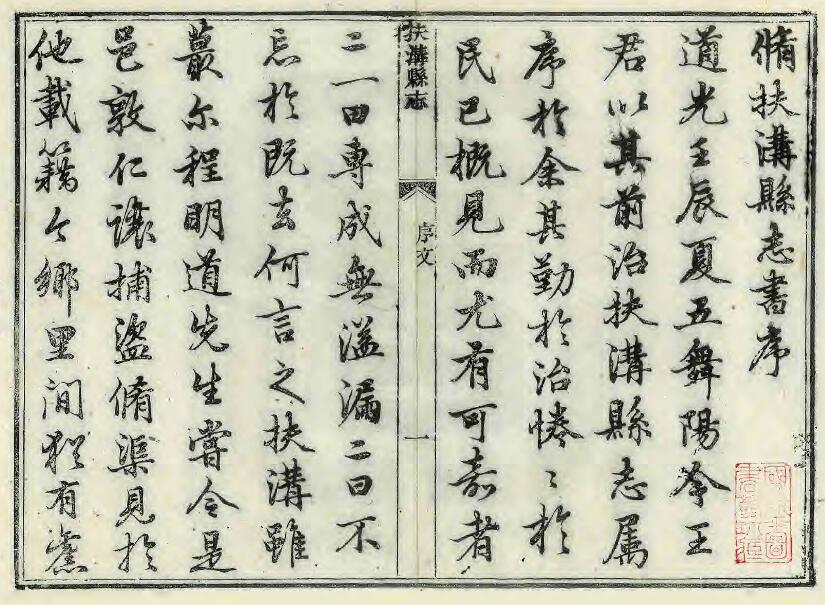 脩扶溝縣志書序
道光壬辰夏五舞陽令王
君以其前治扶溝縣志属
序於余其勤於治惓〻於
民已概見而尤有可嘉者
扶溝縣志
序文
一
二一曰專成無溢漏二曰不
忘於既去何言之扶溝雖
蕞尔程明道先生嘗令是
邑敦仁讓捕盜脩渠見於
他載籍今鄉里間猶有